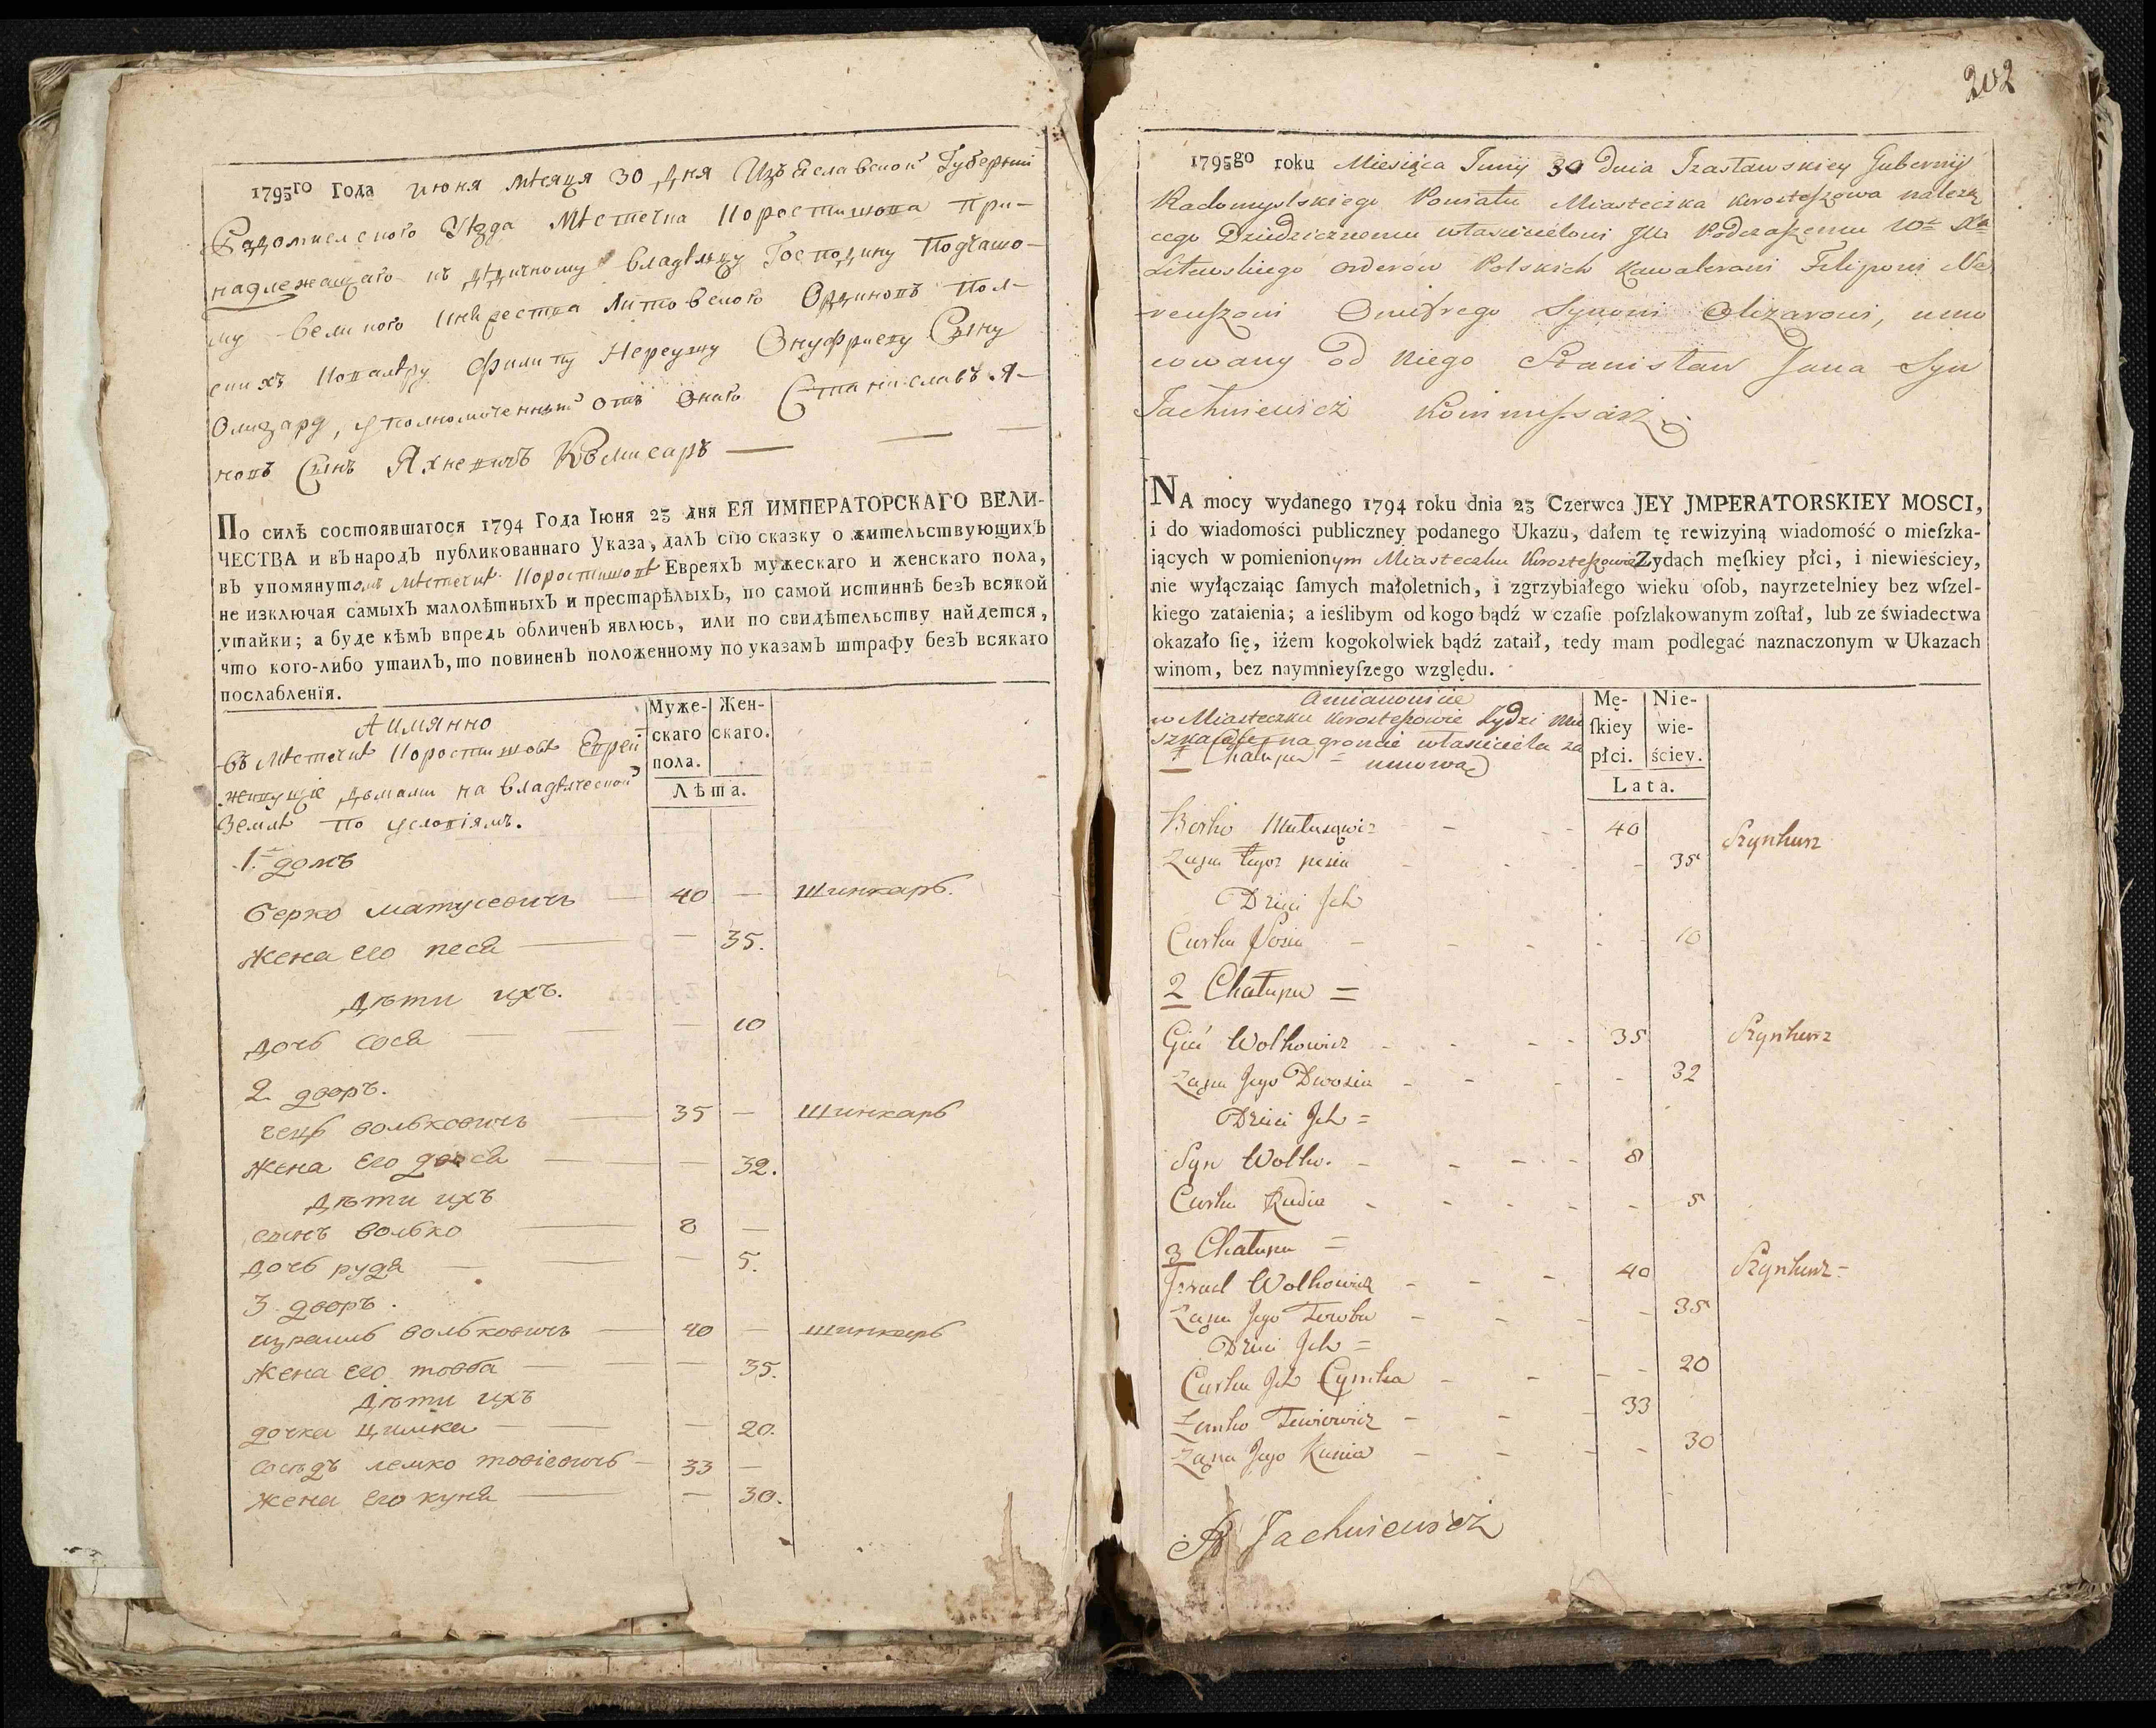 1795го Года июня мѣсяца 30 дня Изъяславской Губерніи
Радомислского Уѣзда Мѣстечка Коростишова при-
надлежащаго къ дѣдичному владѣльцу Господину Подчашо-
му великого Княжества Литовского Ординовъ Пол-
скихъ Кавалѣру Филипу Нереушу Онуфриеву Сыну
Олизару, уполномоченный отъ Онаго Станиславъ Я-
новъ Сынъ Яхневичъ Комисаръ
По силѣ состоявшагося 1794 Года Іюня 23 дня ЕЯ ИМПЕРАТОРСКАГО ВЕЛИ-
ЧЕСТВА и въ народъ публикованнаго Указа, далъ сію сказку о жительствующихъ
въ упомянутомъ мѣстечкѣ Коростишовѣ Евреяхъ мужескаго и женскаго пола,
не изключая самыхъ малолѣтныхъ и престарѣлыхъ, по самой истиннѣ безъ всякой
утайки; а буде кѣмъ впредь обличенъ явлюсь, или по свидѣтельству найдется,
что кого-либо утаилъ, то повиненъ положенному по указамъ штрафу безъ всякаго
послабленія.
Аимянно
въ мѣстечкѣ Коростишовѣ Евреи
живущіе домами на владѣлческой
Землѣ по условіямъ.
Муже- Жен-
скаго скаго.
пола.
Лѣта.
1. домъ
берко матусевичъ 40 — Шинкарь.
жена его песя — 35.
дѣти ихъ.
дочь сося — 10
2 дворъ.
гецъ волковичъ 35 — Шинкарь
жена его двося — 32.
дѣти ихъ
синъ волько 8 —
дочь рудя — 5.
3 дворъ.
израиль вольковичъ 40 — шинкарь
жена его товба — 35.
дѣти ихъ
дочка цимка — 20.
сосѣдъ лемко товіевичь 33 —
жена его куня — 30.
202
1795go roku Miesiąca Junij 30 dnia Izasławskiey Gubernij
Radomyslskiego Powiatu Miasteczka Korosteszowa należą
cego Dziedzicznemu właścicielowi JW Podczaszemu Wo Xa
Litewskiego orderow Polskich Kawalerowi Filipowi Ne
reuszowi Onufrego Synowi Olizarowi, umo
cowany od niego Stanisław Jana Syn
Jachniewicz Kommissarz.
NA mocy wydanego 1794 roku dnia 23 Czerwca JEY JMPERATORSKIEY MOSCI,
i do wiadomości publiczney podanego Ukazu, dałem tę rewizyiną wiadomość o mieſzka-
iących w pomienionym Miasteczku Korosteszowie Zydach męſkiey płci, i niewieściey,
nie wyłączaiąc ſamych małoletnich, i zgrzybiałego wieku oſob, nayrzetelniey bez wſzel-
kiego zataienia; a ieślibym od kogo bądź w czaſie poſzlakowanym zoſtał, lub ze świadectwa
okazało ſię, iżem kogokolwiek bądź zataił, tedy mam podlegać naznaczonym w Ukazach
winom, bez naymnieyſzego względu.
Amianowicie
w Miasteczku Korosteszowie Zydzi mie
szkaiące na groncie właściciela za
1 Chałupa = umową
Mę- Nie-
ſkiey wie-
płci. ściey.
Lata.
Berko Matusowicz 40 Szynkarz
Zona Iego Pesia 35
Dzieci Jch
Curka Sosia 10
2 Chałupa =
Gieć Wolkowicz 35 Szynkarz
Zona Jego Dwosia 32
Dzieci Jch =
Syn Wolko. 8
Curka Rudia 5
3 Chałupa =
Jzrael Wolkowicz 40 Szynkarz
Zona Jego Towba 35
Dzieci Jch =
Curka Jch Cymka 20
Lemko Tewiowicz 33
Zona Jego Kunia 30
Jachniewicz